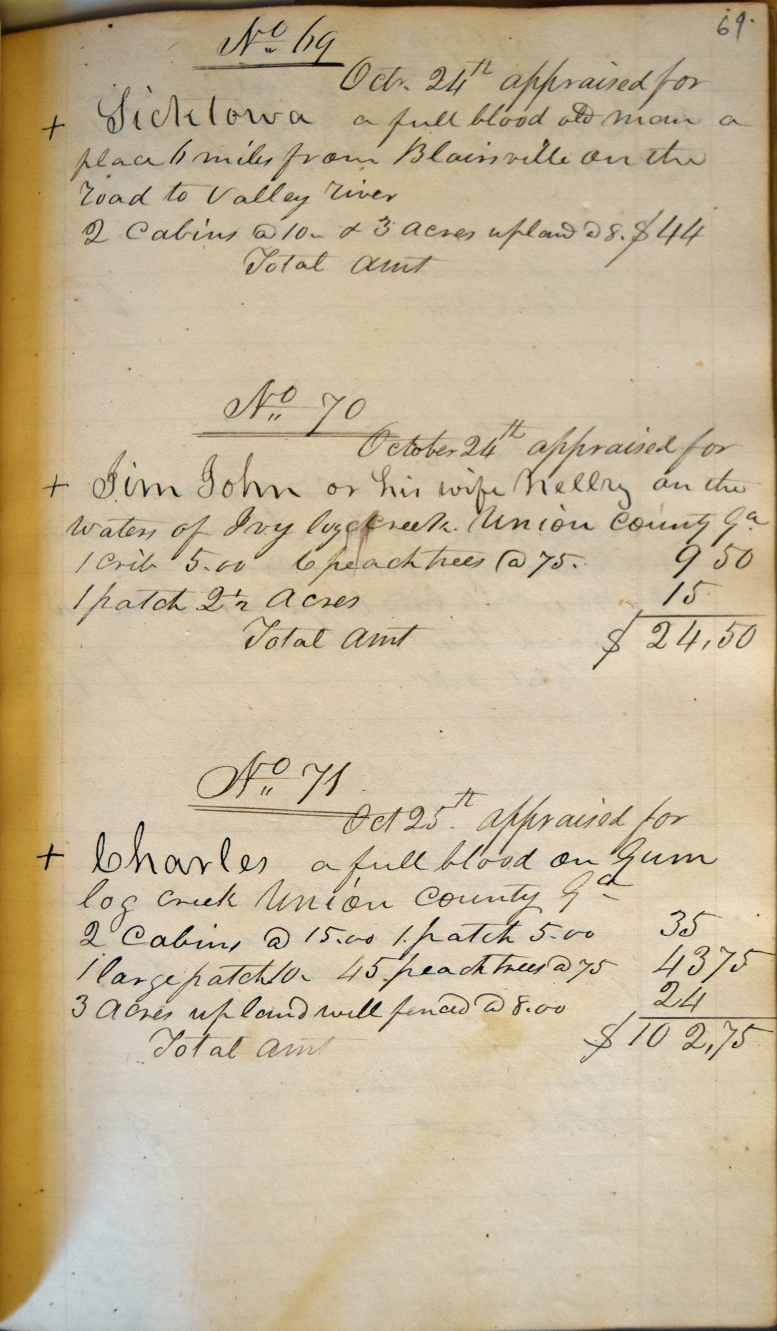 69.
No 69
Octr. 24th appraised for
+ Sicktowa a full blood old man a
place 6 miles from Blairsville on the
road to Valley river
2 Cabins @ 10– & 3 acres upland @ 8. $44
Total amt
No 70
October 24th appraised for
+ Jim John or his wife Nelly on the
waters of Ivy log creek. Union County Ga
1 crib 5.00 6 peach trees @ 75. 9 50
1 patch 2 1/2 acres 15
Total amt $ 24,50
No 71
Oct 25th appraised for
+ Charles a full blood on Gum
log creek Union County Ga
2 Cabins @ 15.00 1 patch 5.00 35
1 large patch 10– 45 peach trees @ 75 43 75
3 acres upland will fenced @ 8.00 24
Total amt $ 102,75